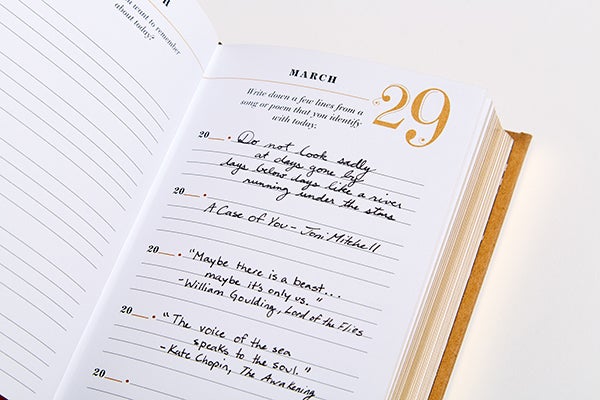 H
you want to remember
about today?
MARCH
29
Write down a few lines from a
song or poem that you identify
with today.
20
Do not look sadly
at days gone by
days below days like a river
running under the stars
20
A Case of You - Joni Mitchell
20
"Maybe there is a beast...
maybe it's only us."
-William Goulding, Lord of the Flies
20
"The voice of the sea
speaks to the soul."
-Kate Chopin, The Awakening
20